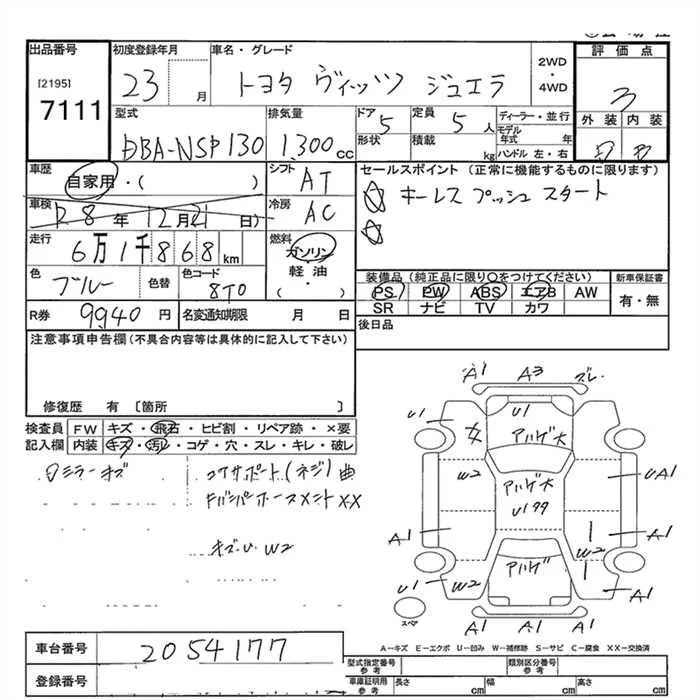 出品番号
[2195]
7111
初度登録年月
23 月
車名・グレード
トヨタ ヴィッツ ジュエラ
2WD
・
4WD
評価点
3
外装 内装
D D
型式
DBA-NSP130
排気量
1,300 cc
ドア
5
形状
定員
5 人
積載
kg
ディーラー・並行
モデル
年式 年
ハンドル 左・右
車歴
自家用・( )
シフト
AT
車検
28年12月21日)
冷房
AC
走行
6万1千868 km
燃料
ガソリン
軽油
・( )
色
ブルー
色替
色コード
8T0
R券 9940円
名変通知期限 月 日
セールスポイント(正常に機能するものに限ります)
キーレス プッシュ スタート
装備品(純正品に限り○をつけてください)
PS PW ABS エアB AW
SR ナビ TV カワ
新車保証書
有・無
後日品
注意事項申告欄(不具合内容等は具体的に記入して下さい)
修復歴 有 〔箇所 〕
検査員
記入欄
FW キズ・飛石・ヒビ割・リペア跡・×要
内装 キズ・汚レ・コゲ・穴・スレ・キレ・破レ
ミラーキズ
コアサポート(ネジ)曲
XX
キズU W2
A1 A3 ズレ
U1 U1
アハゲ大
W2
アハゲ大
UA1
U177
A1 A1
W2
アハゲ
U1 W2 A1
A1 A1 A1
スペア
A=キズ E=エクボ U=凹み W=補修跡 S=サビ C=腐食 XX=交換済
車台番号 2054177
登録番号
型式指定番号
参考
類別区分番号
参考
車庫証明用
参考
長さ cm 幅 cm 高さ cm